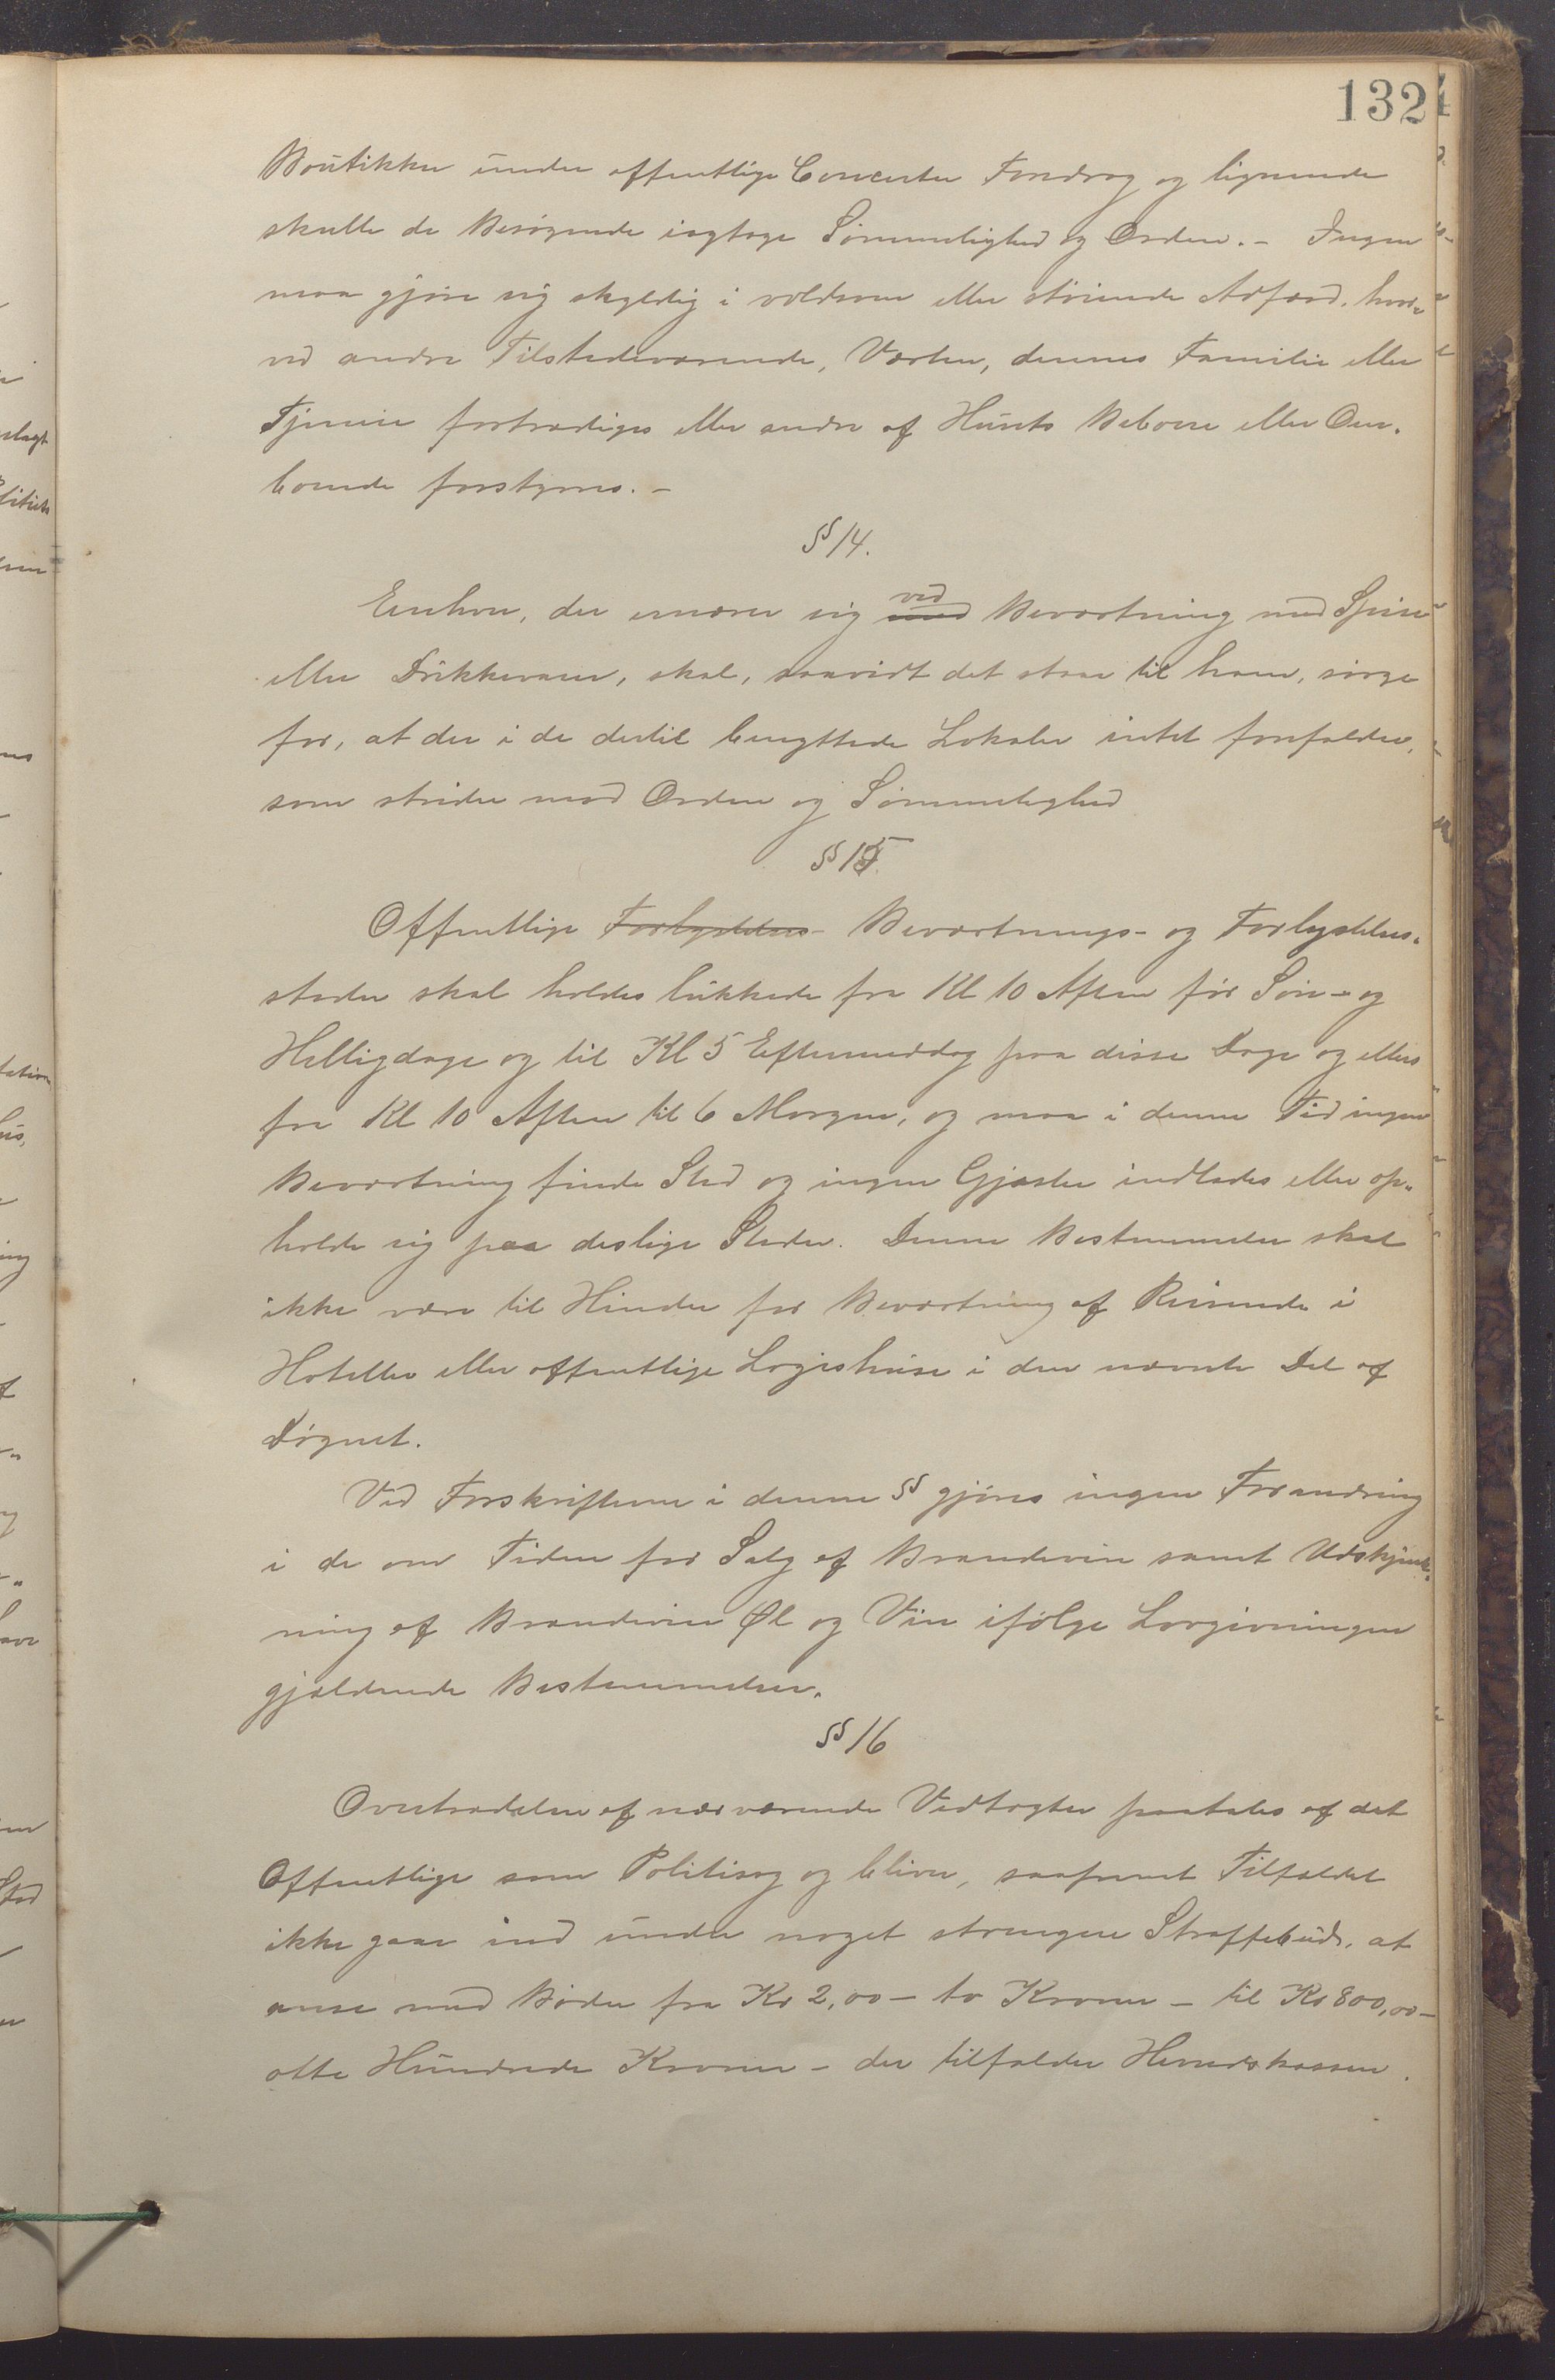 132
Boutikker under offentlige Concerter Foredrag og lignende
skulle de Besøgende iagtage Sømmelighed og Orden. – Ingen
maa gjøre sig skyldig i voldsom eller støiende Adfærd, hvor-
ved andre Tilstedeværende, Værten, dennes Familie eller
Tjenere fortrædiges eller andre af Husets Beboere eller Om-
boende forstyrres. –
§ 14.
Enhver, der ernærer sig ved med Beværtning med Spise
eller Drikkevarer, skal, saavidt det staar til ham, sørge
for, at der i de dertil benyttede Lokaler intet forefalder,
som strider mod Orden og Sømmelighed
§ 15.
Offentlige Forlystelses- Beværtnings- og Forlystelses-
steder skal holdes lukkede fra Kl 10 Aften før Søn- og
Helligdage og til Kl 5 Eftermiddag paa disse Dage og ellers
fra Kl 10 Aften til 6 Morgen, og maa i denne Tid ingen
Beværtning finde Sted og ingen Gjæster indlades eller op-
holde sig paa deslige Steder. Denne Bestemmelse skal
ikke være til Hinder for Beværtning af Reisende i
Hoteller eller offentlige Logishuse i den nævnte Del af
Døgnet.
Ved Forskrifterne i denne § gjøres ingen Forandring
i de om Tiden for Salg af Brændevin samt Udskjænk-
ning af Brændevin Øl og Vin ifølge Lovgivningen
gjældende Bestemmelser.
§ 16
Overtrædelse af nærværende Vedtægter paatales af det
Offentlige som Politisag og bliver, saafremt Tilfældet
ikke gaar ind under noget strængere Straffebud, at
anse med Bøder fra Kr 2,00 – to Kroner – til Kr 800,00 –
otte Hundrede Kroner – der tilfalder Herredskassen.